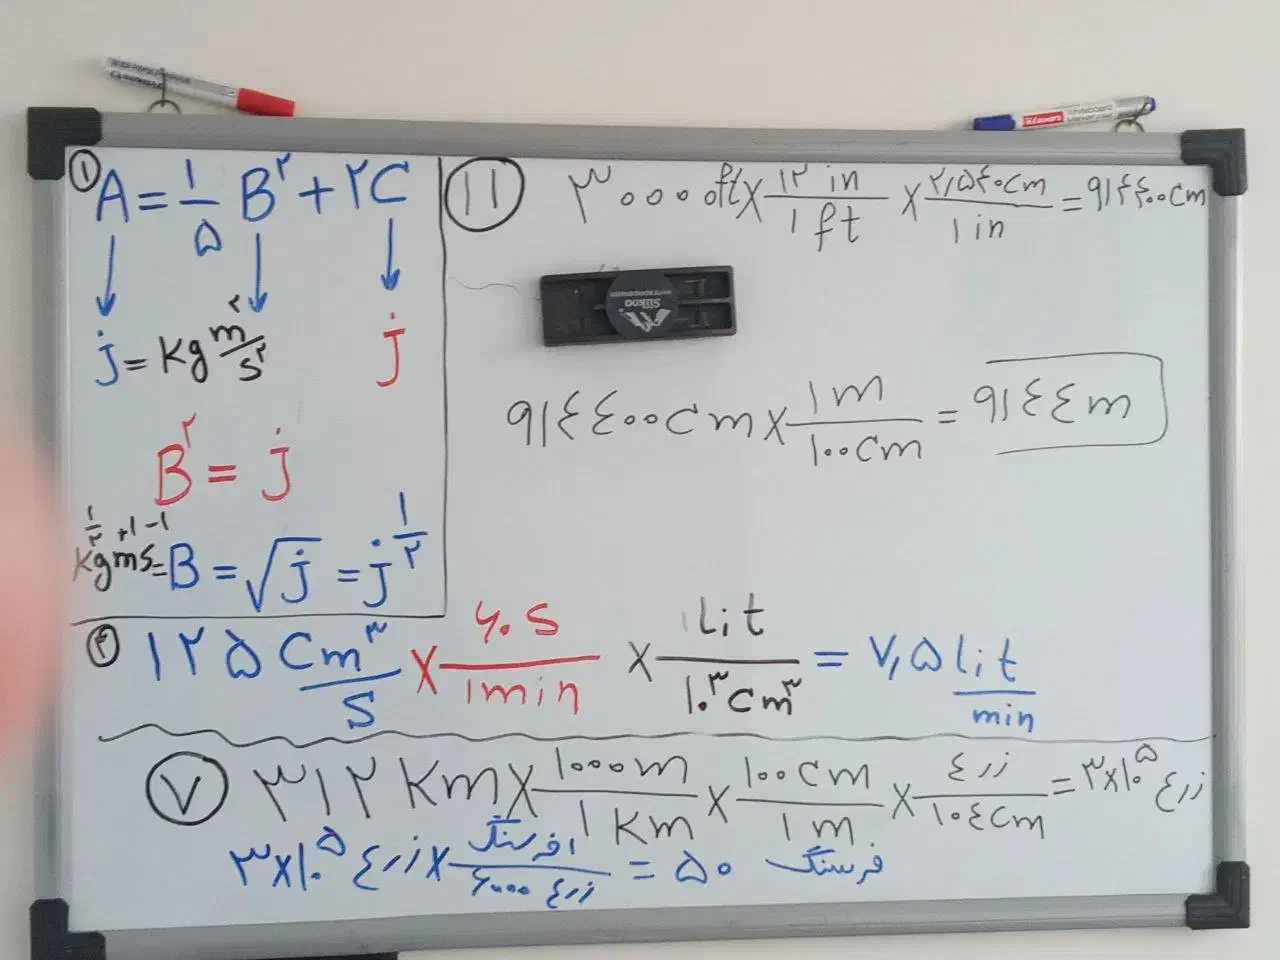 ① A = ۱/۵ B^۲ + ۲C
j = kg m^۲/s^۲ j
B^۲ = j
kg^۱/۲ m^+۱ s^-۱ = B = √j = j^۱/۲
⑪ ۳۰۰۰۰ ft × ۱۲ in/۱ ft × ۲,۵۴۰ cm/۱ in = ۹۱۴۴۰۰ cm
۹۱۴۴۰۰ cm × ۱ m/۱۰۰ cm = ۹۱۴۴ m
④ ۱۲۵ cm^۳/s × ۶۰ s/۱ min × ۱ Lit/۱۰^۳ cm^۳ = ۷,۵ Lit/min
⑦ ۳۱۲ km × ۱۰۰۰ m/۱ km × ۱۰۰ cm/۱ m × ذرع/۱۰۴ cm = ۳×۱۰^۵ ذرع
۳×۱۰^۵ ذرع × ۱ فرسنگ/۶۰۰۰ ذرع = ۵۰ فرسنگ